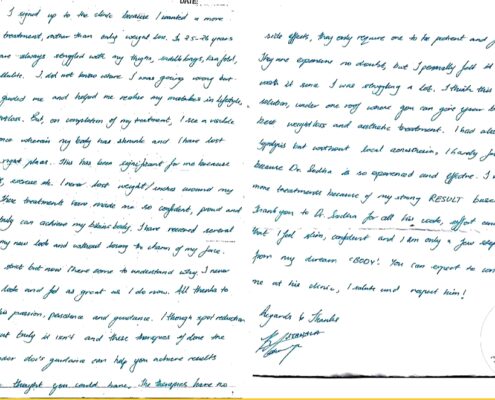 DATE:
I signed up to the clinic because I wanted a more
treatment, rather than only weight loss. In 25-26 years
always struggled with my thighs, bra fold,
I did not know where I was going wrong but
guided me and helped me realise my mistakes in lifestyle,
But, on completion of my treatment, I see a visible
wherein my body has shrunk and I have lost
right places. This has been significant for me because
exercise etc. I never lost weight/inches around my
These treatments have made me so confident, proud and
truly can achieve my bikini body. I have received several
my new look and without losing the charm of my face.
start but now I have come to understand why I never
look and feel as great as I do now. All thanks to
his passion, persistence and guidance. I though spot reduction
but truly it isn't and these therapies if done the
under doc's guidance can help you achieve results
thought you could have. The therapies have no
side effects, they only require one to be patient and
They are expensive no doubt, but I personally felt it
worth it since I was struggling a lot. I think this
solution, under one roof where you can give your
best weightloss and aesthetic treatment. I had also
lypolysis but without local anaesthesia, I hardly
because Dr. Sudha is so experienced and effective. I
more treatments because of my strong RESULT base
Thank you to Dr. Sudha for all his work, effort and
that I feel slim, confident and I am only a few steps
from my dream 'BODY'. You can expect to
me at his clinic, I salute and respect him!
Regards & Thanks